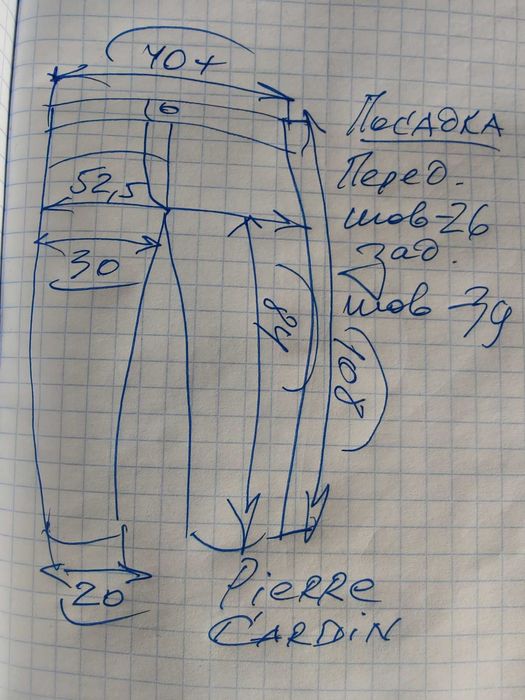 40+
52,5
30
84
108
20
Посадка
Перед.
шов-26
зад.
шов-39
Pierre
Cardin